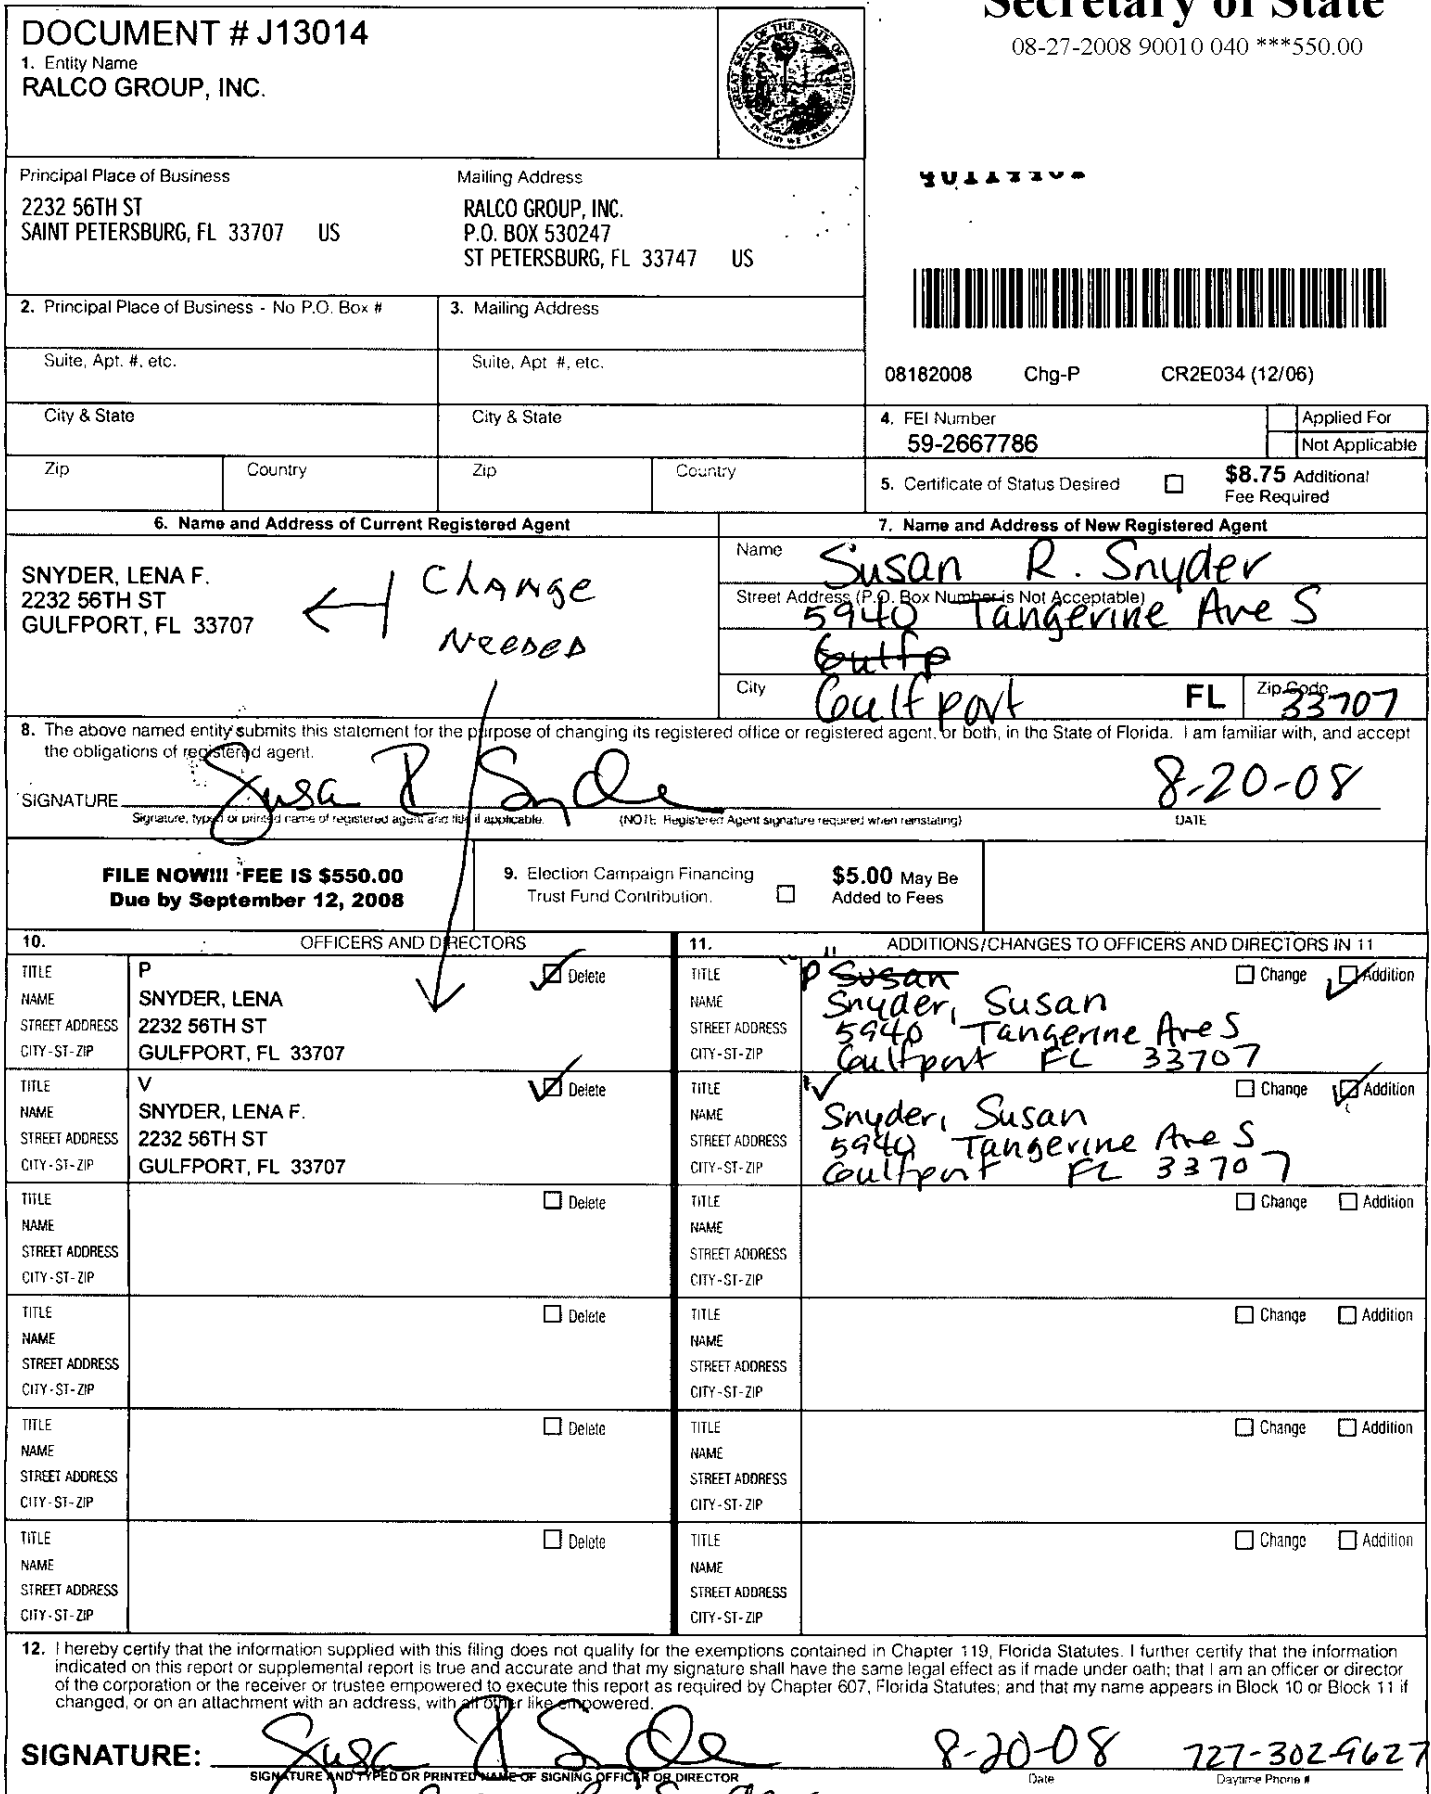 Secretary of State
08-27-2008 90010 040 ***550.00
DOCUMENT # J13014
1. Entity Name
RALCO GROUP, INC.
GREAT SEAL OF THE STATE OF FLORIDA
IN GOD WE TRUST
Principal Place of Business
2232 56TH ST
SAINT PETERSBURG, FL 33707 US
Mailing Address
RALCO GROUP, INC.
P.O. BOX 530247
ST PETERSBURG, FL 33747 US
2. Principal Place of Business - No P.O. Box #
3. Mailing Address
Suite, Apt. #, etc.
Suite, Apt #, etc.
08182008 Chg-P CR2E034 (12/06)
City & State
City & State
4. FEI Number
59-2667786
Applied For
Not Applicable
Zip
Country
Zip
Country
5. Certificate of Status Desired
$8.75 Additional
Fee Required
6. Name and Address of Current Registered Agent
SNYDER, LENA F.
2232 56TH ST
GULFPORT, FL 33707
Change
Needed
7. Name and Address of New Registered Agent
Name
Susan R. Snyder
Street Address (P.O. Box Number is Not Acceptable)
5940 Tangerine Ave S
Gulfp
City
Gulfport
FL
Zip Code
33707
8. The above named entity submits this statement for the purpose of changing its registered office or registered agent, or both, in the State of Florida. I am familiar with, and accept
the obligations of registered agent.
SIGNATURE
Susa R Snyder
8-20-08
Signature, typed or printed name of registered agent and title if applicable.
(NOTE: Registered Agent signature required when reinstating)
DATE
FILE NOW!!! FEE IS $550.00
Due by September 12, 2008
9. Election Campaign Financing
Trust Fund Contribution.
$5.00 May Be
Added to Fees
10. OFFICERS AND DIRECTORS
11. ADDITIONS/CHANGES TO OFFICERS AND DIRECTORS IN 11
TITLE P Delete
NAME SNYDER, LENA
STREET ADDRESS 2232 56TH ST
CITY-ST-ZIP GULFPORT, FL 33707
TITLE P Susan Change Addition
NAME Snyder, Susan
STREET ADDRESS 5940 Tangerine Ave S
CITY-ST-ZIP Gulfport FL 33707
TITLE V Delete
NAME SNYDER, LENA F.
STREET ADDRESS 2232 56TH ST
CITY-ST-ZIP GULFPORT, FL 33707
TITLE V Change Addition
NAME Snyder, Susan
STREET ADDRESS 5940 Tangerine Ave S
CITY-ST-ZIP Gulfport FL 33707
TITLE Delete
NAME
STREET ADDRESS
CITY-ST-ZIP
TITLE Change Addition
NAME
STREET ADDRESS
CITY-ST-ZIP
TITLE Delete
NAME
STREET ADDRESS
CITY-ST-ZIP
TITLE Change Addition
NAME
STREET ADDRESS
CITY-ST-ZIP
TITLE Delete
NAME
STREET ADDRESS
CITY-ST-ZIP
TITLE Change Addition
NAME
STREET ADDRESS
CITY-ST-ZIP
TITLE Delete
NAME
STREET ADDRESS
CITY-ST-ZIP
TITLE Change Addition
NAME
STREET ADDRESS
CITY-ST-ZIP
12. I hereby certify that the information supplied with this filing does not qualify for the exemptions contained in Chapter 119, Florida Statutes. I further certify that the information
indicated on this report or supplemental report is true and accurate and that my signature shall have the same legal effect as if made under oath; that I am an officer or director
of the corporation or the receiver or trustee empowered to execute this report as required by Chapter 607, Florida Statutes; and that my name appears in Block 10 or Block 11 if
changed, or on an attachment with an address, with all other like empowered.
SIGNATURE: Susa R Snyder 8-20-08 727-302-9627
SIGNATURE AND TYPED OR PRINTED NAME OF SIGNING OFFICER OR DIRECTOR
Date
Daytime Phone #